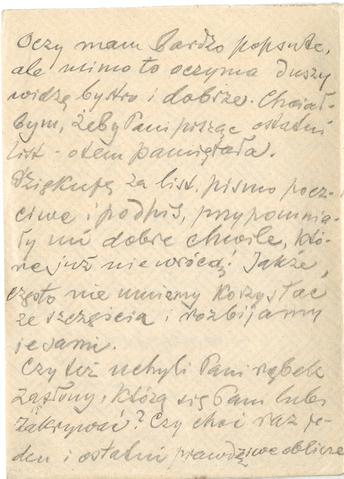 Oczy mam bardzo popsute,
ale mimo to oczyma duszy
widzę bystro i dobrze. Chciał-
bym, żeby Pani pisząc ostatni
list - o tem pamiętała.
Dziękuję za list. pismo pocz-
ciwe i podpis, przypomnia-
ły mi dobre chwile, któ-
re już nie wrócą! Jakże
często nie umiemy korzystać
ze szczęścia i rozbijamy
je sami.
Czy też uchyli Pani rąbek
zasłony, którą się Pani lubi
zakrywać? Czy choć raz je-
den i ostatni prawdziwe oblicze